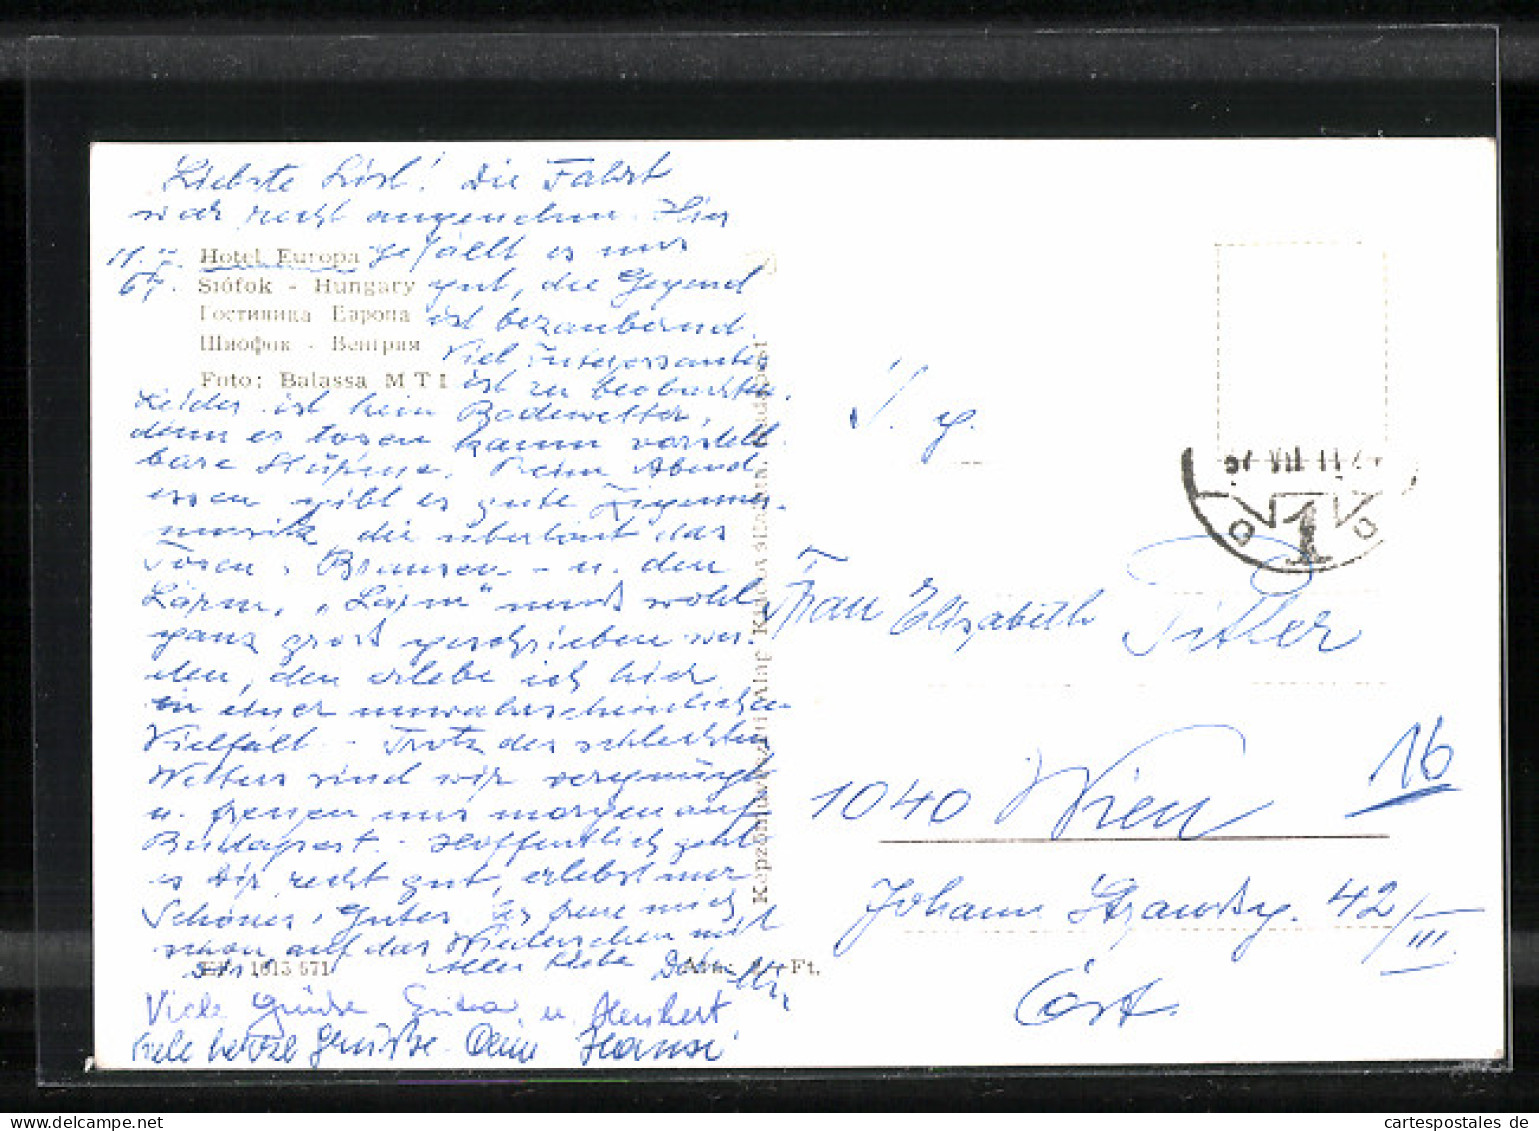 Liebste Lisl! Die Fahrt
war recht angenehm. Hier
11.7. Hotel Europa gefällt es mir
67. Siófok - Hungary gut, die Gegend
Гостиница Европа ist bezaubernd.
Шиофок - Венгрия Viel Interessantes
Foto: Balassa MTI ist zu beobachten.
Leider ist kein Badewetter,
denn es tosen kaum vorstell-
bare Stürme. Beim Abend
essen gibt es gute Zigeuner-
musik die überlönt das
Tosen, Brausen - u. den
Lärm, "Lärm" muß wohl
ganz groß geschrieben wer-
den, den erlebe ich hier
in einer unwahrscheinlichen
Vielfalt. - Trotz des schlechten
Wetters sind wir vergnügt
u. freuen uns morgen auf
Budapest. - Hoffentlich geht
es Dir recht gut, erlebst nur
Schönes, Gutes. Ich freue mich
schon auf das Wiedersehen mit
Dir! Alles Liebe
1013 671
Ft.
Viele Grüße u. Heribert
Viele herzl Grüße Deine Hansi
Képzőművészeti Alap Kiadóvállalata, Budapest
Frau Elisabeth
1040 Wien
16
Johann Straußg. 42/III.
Öst.